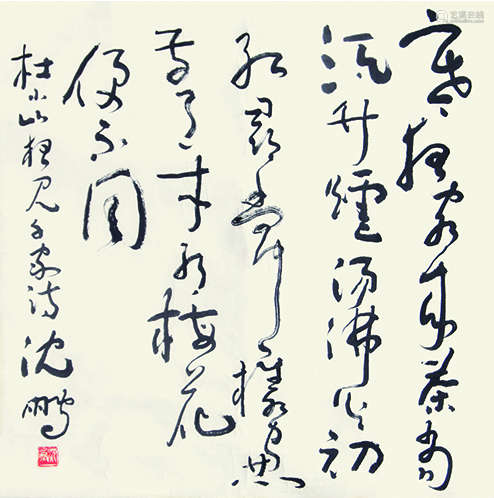 寒夜客来茶当
酒竹爐汤沸火初
红尋常一樣窗
前月才有梅花
便不同
杜小山夜见千家诗 沈鹏